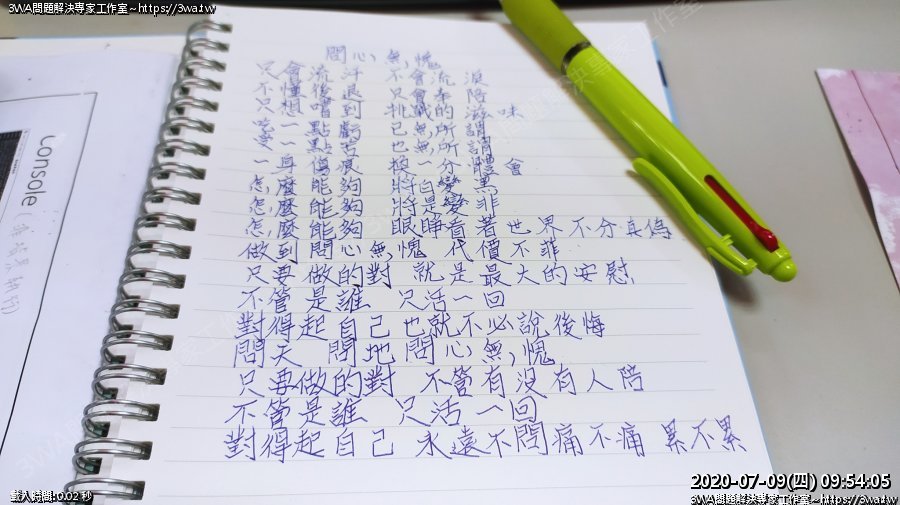 3WA問題解決專家工作室~https://3wa.tw
問心無愧
只會流汗 不會流淚
不懂後退 只會奉陪
只想嚐到 挑戰的滋味
吃一點虧 已無所謂
受一點苦 也無所謂
一身傷痕 換一分體會
怎麼能夠 將白變黑
怎麼能夠 將是變非
怎麼能夠 眼睜看著世界不分真偽
做到問心無愧 代價不菲
只要做的對 就是最大的安慰
不管是誰 只活一回
對得起自己也就不必說後悔
問天 問地 問心無愧
只要做的對 不管有沒有人陪
不管是誰 只活一回
對得起自己 永遠不問痛不痛 累不累
Console
載入時間:0.02 秒
2020-07-09(四) 09:54:05
3WA問題解決專家工作室~https://3wa.tw